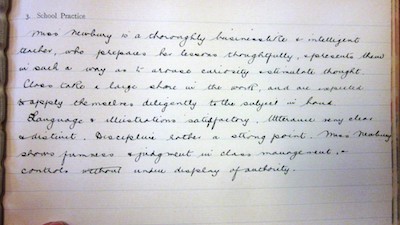 3. School Practice
Miss Newbury is a thoroughly businesslike & intelligent
teacher, who prepares her lessons thoughtfully, & presents them
in such a way as to arouse curiosity & stimulate thought.
Class take a large share in the work, and are expected
to apply themselves diligently to the subject in hand.
Language & illustrations satisfactory. Utterance very clear
& distinct. Discipline rather a strong point. Miss Newbury
shows firmness & judgment in class management, &
controls without undue display of authority.